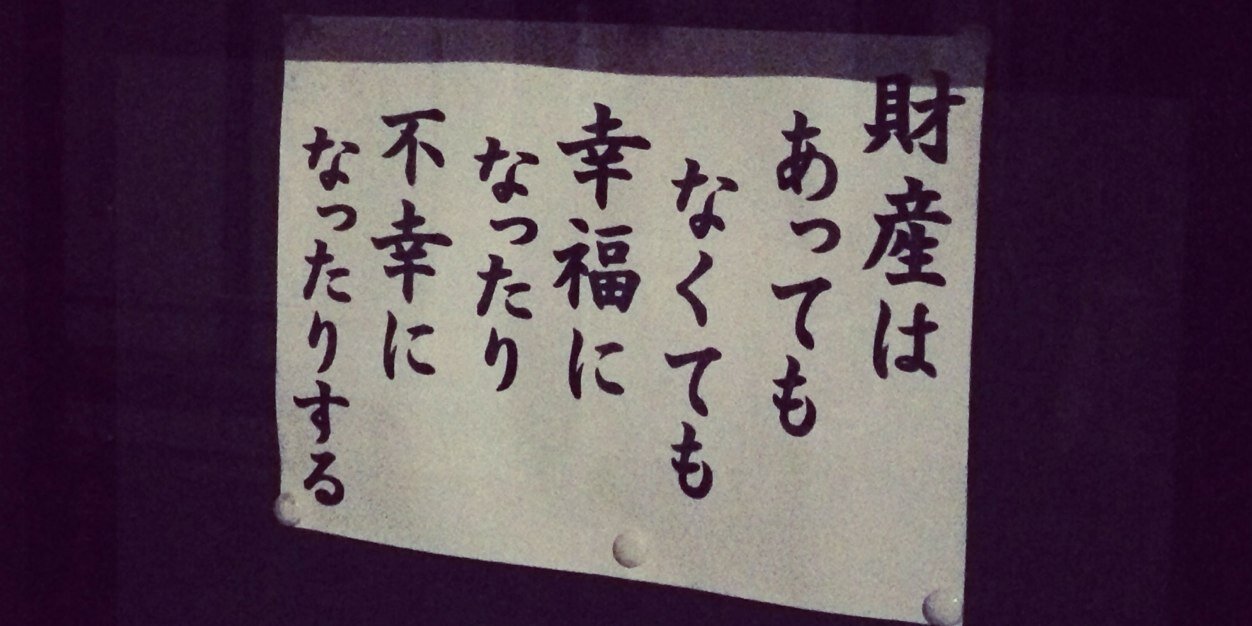 財産は
あっても
なくても
幸福に
なったり
不幸に
なったりする